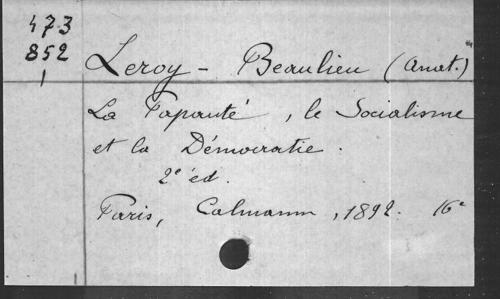 473
852
1
Leroy - Beaulieu (Anat.)
La Papauté, le Socialisme
et la Démocratie.
2e éd.
Paris, Calmann, 1892. 16°